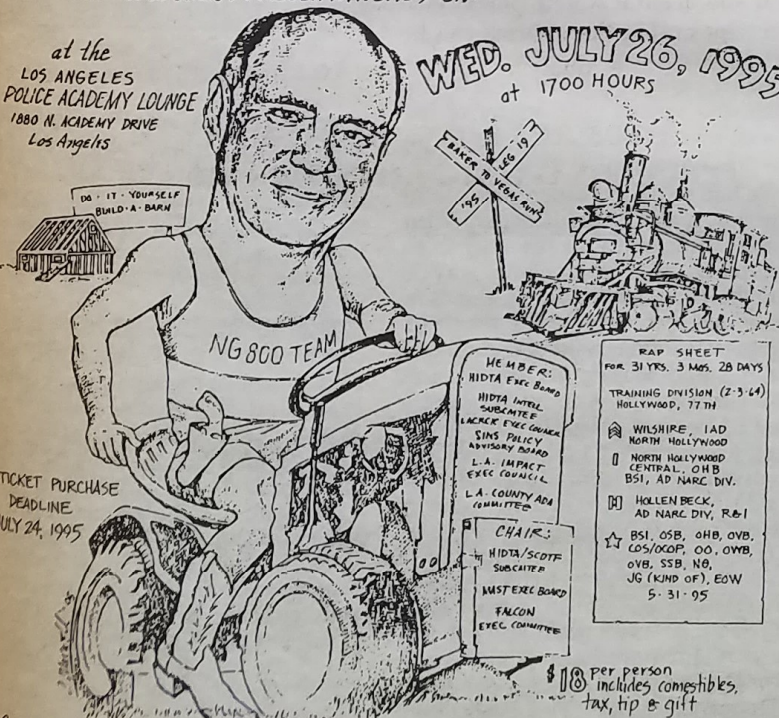 at the
LOS ANGELES
POLICE ACADEMY LOUNGE
1880 N. ACADEMY DRIVE
Los Angeles
WED. JULY 26, 1995
at 1700 HOURS
BAKER TO VEGAS RUN
LEG 19
'95
DO-IT-YOURSELF
BUILD-A-BARN
NG 800 TEAM
MEMBER:
HIDTA EXEC BOARD
HIDTA INTELL
SUBCMTEE
LACRCIC EXEC COUNCIL
SINS POLICY
ADVISORY BOARD
L.A. IMPACT
EXEC COUNCIL
L.A. COUNTY ADA
COMMITTEE
CHAIR:
HIDTA/SCDTF
SUBCMTEE
MUST EXEC BOARD
FALCON
EXEC COMMITTEE
RAP SHEET
FOR 31 YRS. 3 MOS. 28 DAYS
TRAINING DIVISION (2-3-64)
HOLLYWOOD, 77TH
WILSHIRE, IAD
NORTH HOLLYWOOD
NORTH HOLLYWOOD
CENTRAL, OHB
BSI, AD NARC DIV.
HOLLENBECK,
AD NARC DIV, R&I
BSI, OSB, OHB, OVB,
COS/OCOP, OO, OWB,
OVB, SSB, NG,
JG (KIND OF), EOW
5-31-95
TICKET PURCHASE
DEADLINE
JULY 24, 1995
$18 per person
includes comestibles,
tax, tip & gift